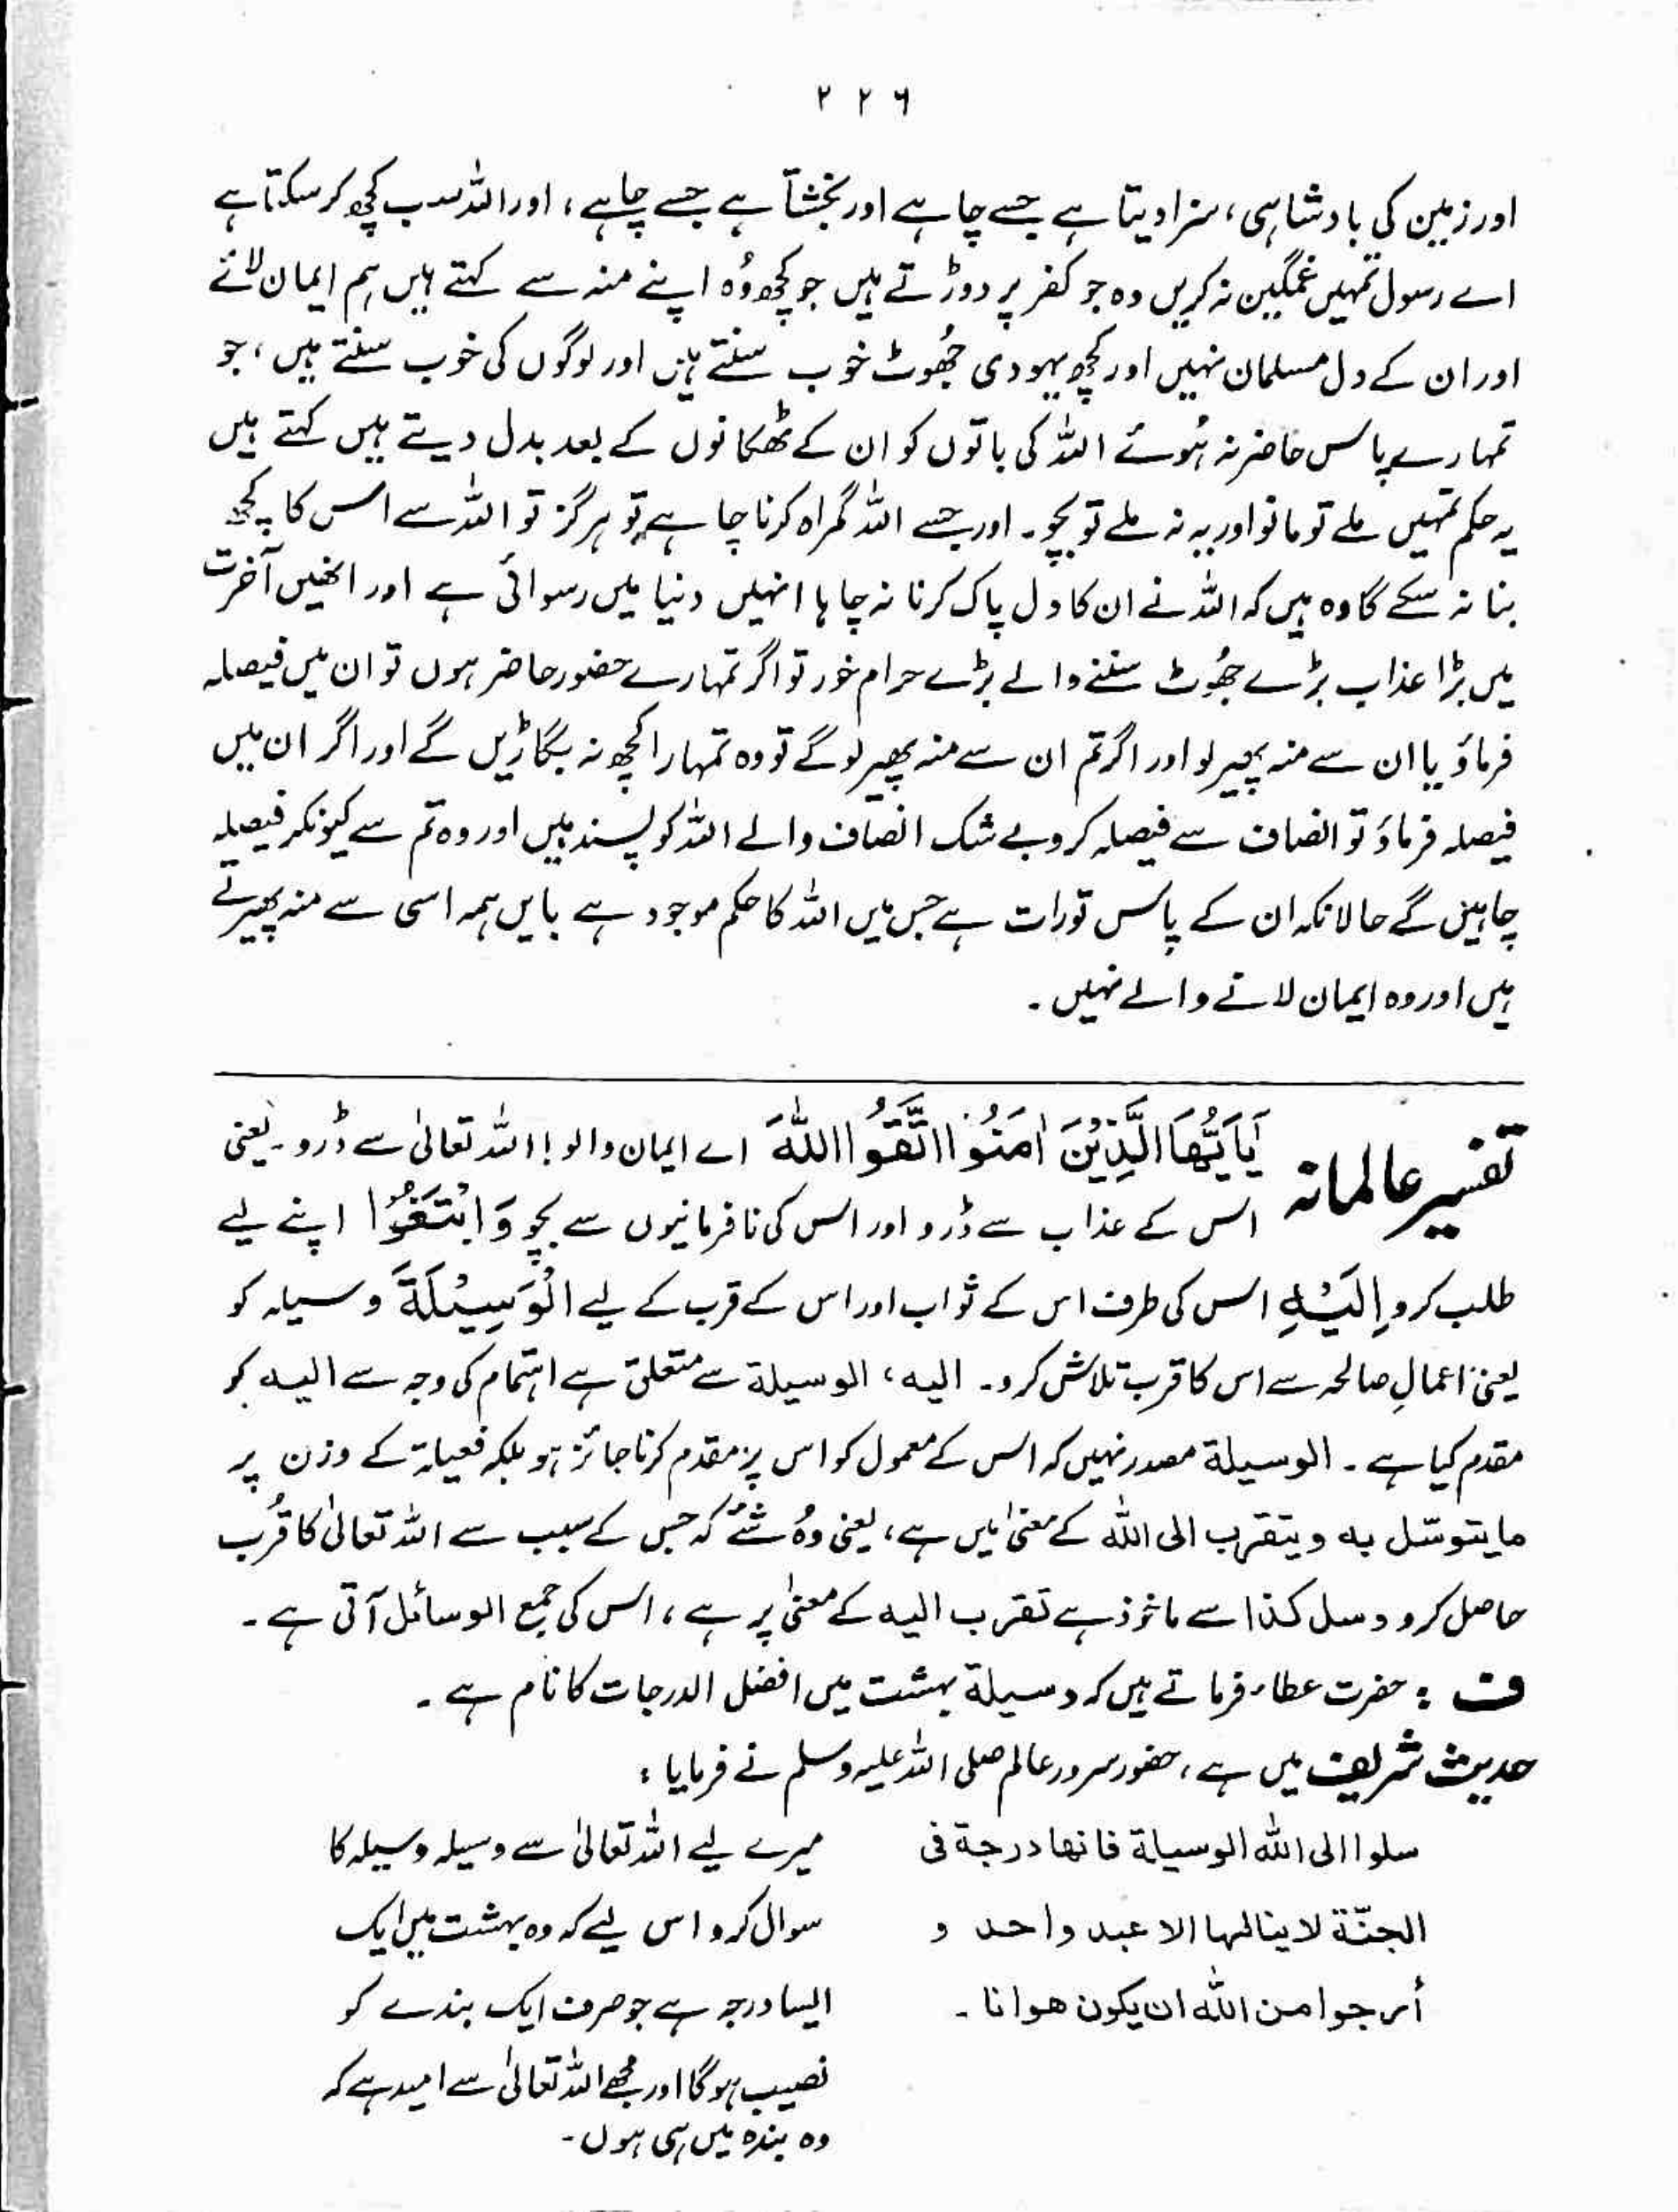 ۲۲۶
اور زمین کی بادشاہی، سزا دیتا ہے جسے چاہے اور بخشتا ہے جسے چاہے، اور اللہ سب کچھ کرسکتا ہے
اے رسول تمہیں غمگین نہ کریں وہ جو کفر پر دوڑتے ہیں جو کچھ وُہ اپنے منہ سے کہتے ہیں ہم ایمان لائے
اور ان کے دل مسلمان نہیں اور کچھ یہودی جھُوٹ خوب سنتے ہیں اور لوگوں کی خوب سنتے ہیں، جو
تمہارے پاس حاضر نہ ہُوئے اللہ کی باتوں کو ان کے ٹھکانوں کے بعد بدل دیتے ہیں کہتے ہیں
یہ حکم تمہیں ملے تو مانو اور یہ نہ ملے تو بچو۔ اور جسے اللہ گمراہ کرنا چاہے تو ہرگز تو اللہ سے اس کا کچھ
بنا نہ سکے گا وہ ہیں کہ اللہ نے ان کا دل پاک کرنا نہ چاہا انہیں دنیا میں رسوائی ہے اور انھیں آخرت
میں بڑا عذاب بڑے جھُوٹ سننے والے بڑے حرام خور تو اگر تمہارے حضور حاضر ہوں تو ان میں فیصلہ
فرماؤ یا ان سے منہ پھیر لو اور اگر تم ان سے منہ پھیر لو گے تو وہ تمہارا کچھ نہ بگاڑیں گے اور اگر ان میں
فیصلہ فرماؤ تو انصاف سے فیصلہ کرو بے شک انصاف والے اللہ کو پسند ہیں اور وہ تم سے کیونکر فیصلہ
چاہیں گے حالانکہ ان کے پاس تورات ہے جس میں اللہ کا حکم موجود ہے بایں ہمہ اسی سے منہ پھیرتے
ہیں اور وہ ایمان لانے والے نہیں۔
تفسیر عالمانہ یٰۤاَیُّهَا الَّذِیْنَ اٰمَنُوا اتَّقُوا اللّٰهَ اے ایمان والو! اللہ تعالیٰ سے ڈرو۔ یعنی
اس کے عذاب سے ڈرو اور اس کی نافرمانیوں سے بچو وَابْتَغُوْٓا اپنے لیے
طلب کرو اِلَیْهِ اس کی طرف اس کے ثواب اور اس کے قرب کے لیے الْوَسِیْلَةَ وسیلہ کو
یعنی اعمالِ صالحہ سے اس کا قرب تلاش کرو۔ الیه، الوسیلة سے متعلق ہے اہتمام کی وجہ سے الیه کو
مقدم کیا ہے۔ الوسیلة مصدر نہیں کہ اس کے معمول کو اس پر مقدم کرنا جائز ہو بلکہ فعیلۃ کے وزن پر
ما یتوسّل به و یتقرب الی اللّٰه کے معنیٰ میں ہے، یعنی وُہ شے کہ جس کے سبب سے اللہ تعالیٰ کا قُرب
حاصل کرو وسل کذا سے ماخوذ ہے تقرب الیه کے معنیٰ پر ہے، اس کی جمع الوسائل آتی ہے۔
ف : حضرت عطاء فرماتے ہیں کہ وسیلة بہشت میں افضل الدرجات کا نام ہے۔
حدیث شریف میں ہے، حضور سرور عالم صلی اللہ علیہ وسلم نے فرمایا :
سلوا الی اللّٰه الوسیلة فانها درجة فی
الجنّة لا ینالها الا عبد واحد و
أرجوا من اللّٰه ان یکون هو انا۔
میرے لیے اللہ تعالیٰ سے وسیلہ وسیلہ کا
سوال کرو اس لیے کہ وہ بہشت میں ایک
ایسا درجہ ہے جو صرف ایک بندے کو
نصیب ہوگا اور مجھے اللہ تعالیٰ سے امید ہے کہ
وہ بندہ میں ہی ہوں۔